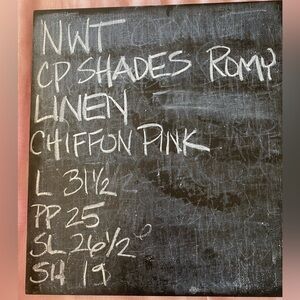 NWT
CP SHADES ROMY
LINEN
CHIFFON PINK
L 31 1/2
PP 25
SL 26 1/2
SH 19